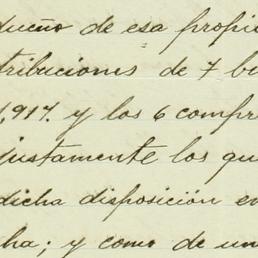 dueño de esa propie
tribuciones de 7 bi
1,917. y los 6 compre
justamente los qu
dicha disposición en
ha; y como de un